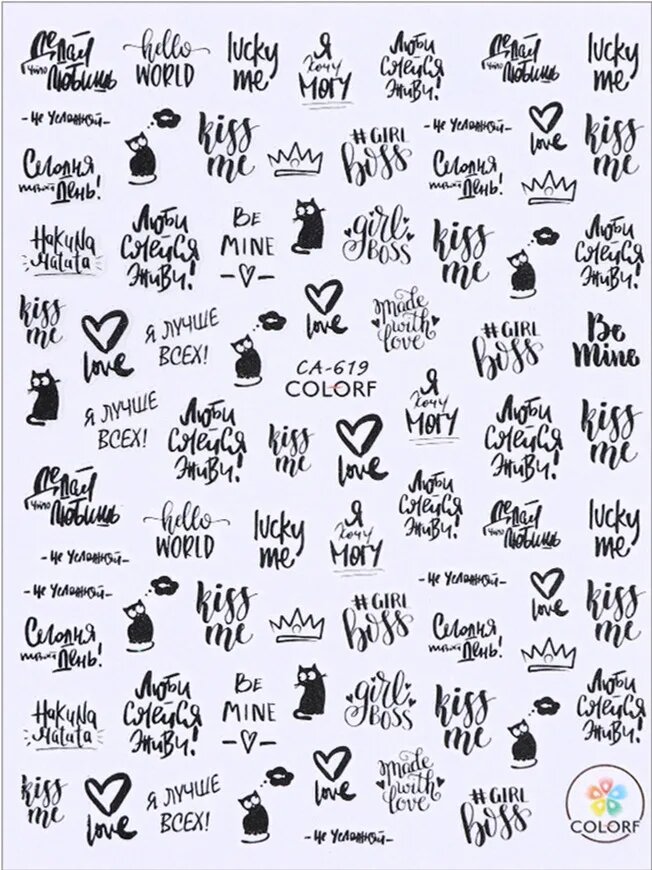 Делай
что Любишь
hello
WORLD
lucky
me
Я
Хочу
Могу
Люби
Смейся
Живи!
Делай
что Любишь
lucky
me
- Не Усложняй -
kiss
me
# GIRL
Boss
- Не Усложняй -
love
kiss
me
Сегодня
твой День!
Сегодня
твой День!
Hakuna
Matata
Люби
Смейся
Живи!
Be
MINE
girl
BOSS
kiss
me
Люби
Смейся
Живи!
kiss
me
love
Я ЛУЧШЕ
ВСЕХ!
love
made
with
love
# GIRL
Boss
Be
Mine
CA-619
COLORF
Я ЛУЧШЕ
ВСЕХ!
Люби
Смейся
Живи!
kiss
me
love
Я
Хочу
Могу
Люби
Смейся
Живи!
kiss
me
Делай
что Любишь
hello
WORLD
lucky
me
Я
Хочу
Могу
Люби
Смейся
Живи!
Делай
что Любишь
lucky
me
- Не Усложняй -
- Не Усложняй -
kiss
me
# GIRL
Boss
- Не Усложняй -
love
kiss
me
Сегодня
твой День!
Сегодня
твой День!
Hakuna
Matata
Люби
Смейся
Живи!
Be
MINE
girl
BOSS
kiss
me
Люби
Смейся
Живи!
kiss
me
love
Я ЛУЧШЕ
ВСЕХ!
love
made
with
love
# GIRL
Boss
- Не Усложняй -
COLORF